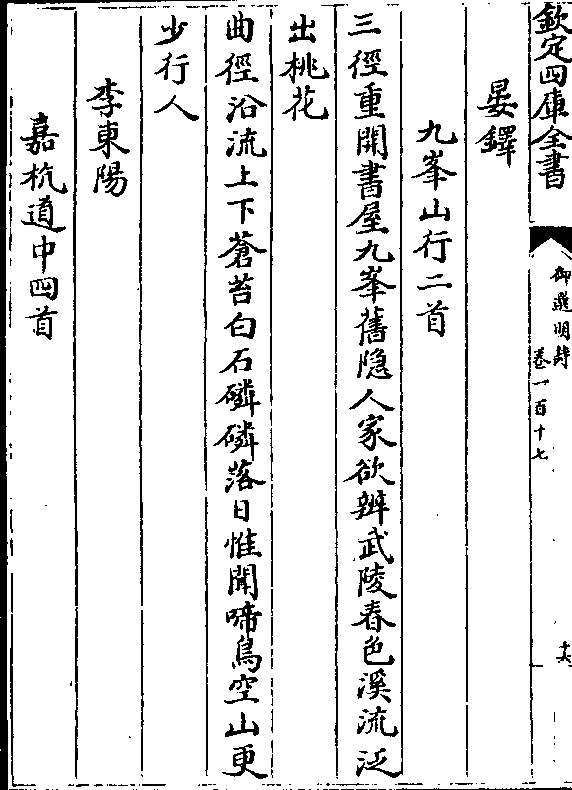 欽定四庫全書
御選明詩
卷一百十七
十六
晏鐸
九峯山行二首
三徑重開書屋九峯舊隠人家欲辨武陵春色溪流泛
出桃花
曲徑沿流上下蒼苔白石磷磷落日惟聞啼鳥空山更
少行人
李東陽
嘉杭道中四首